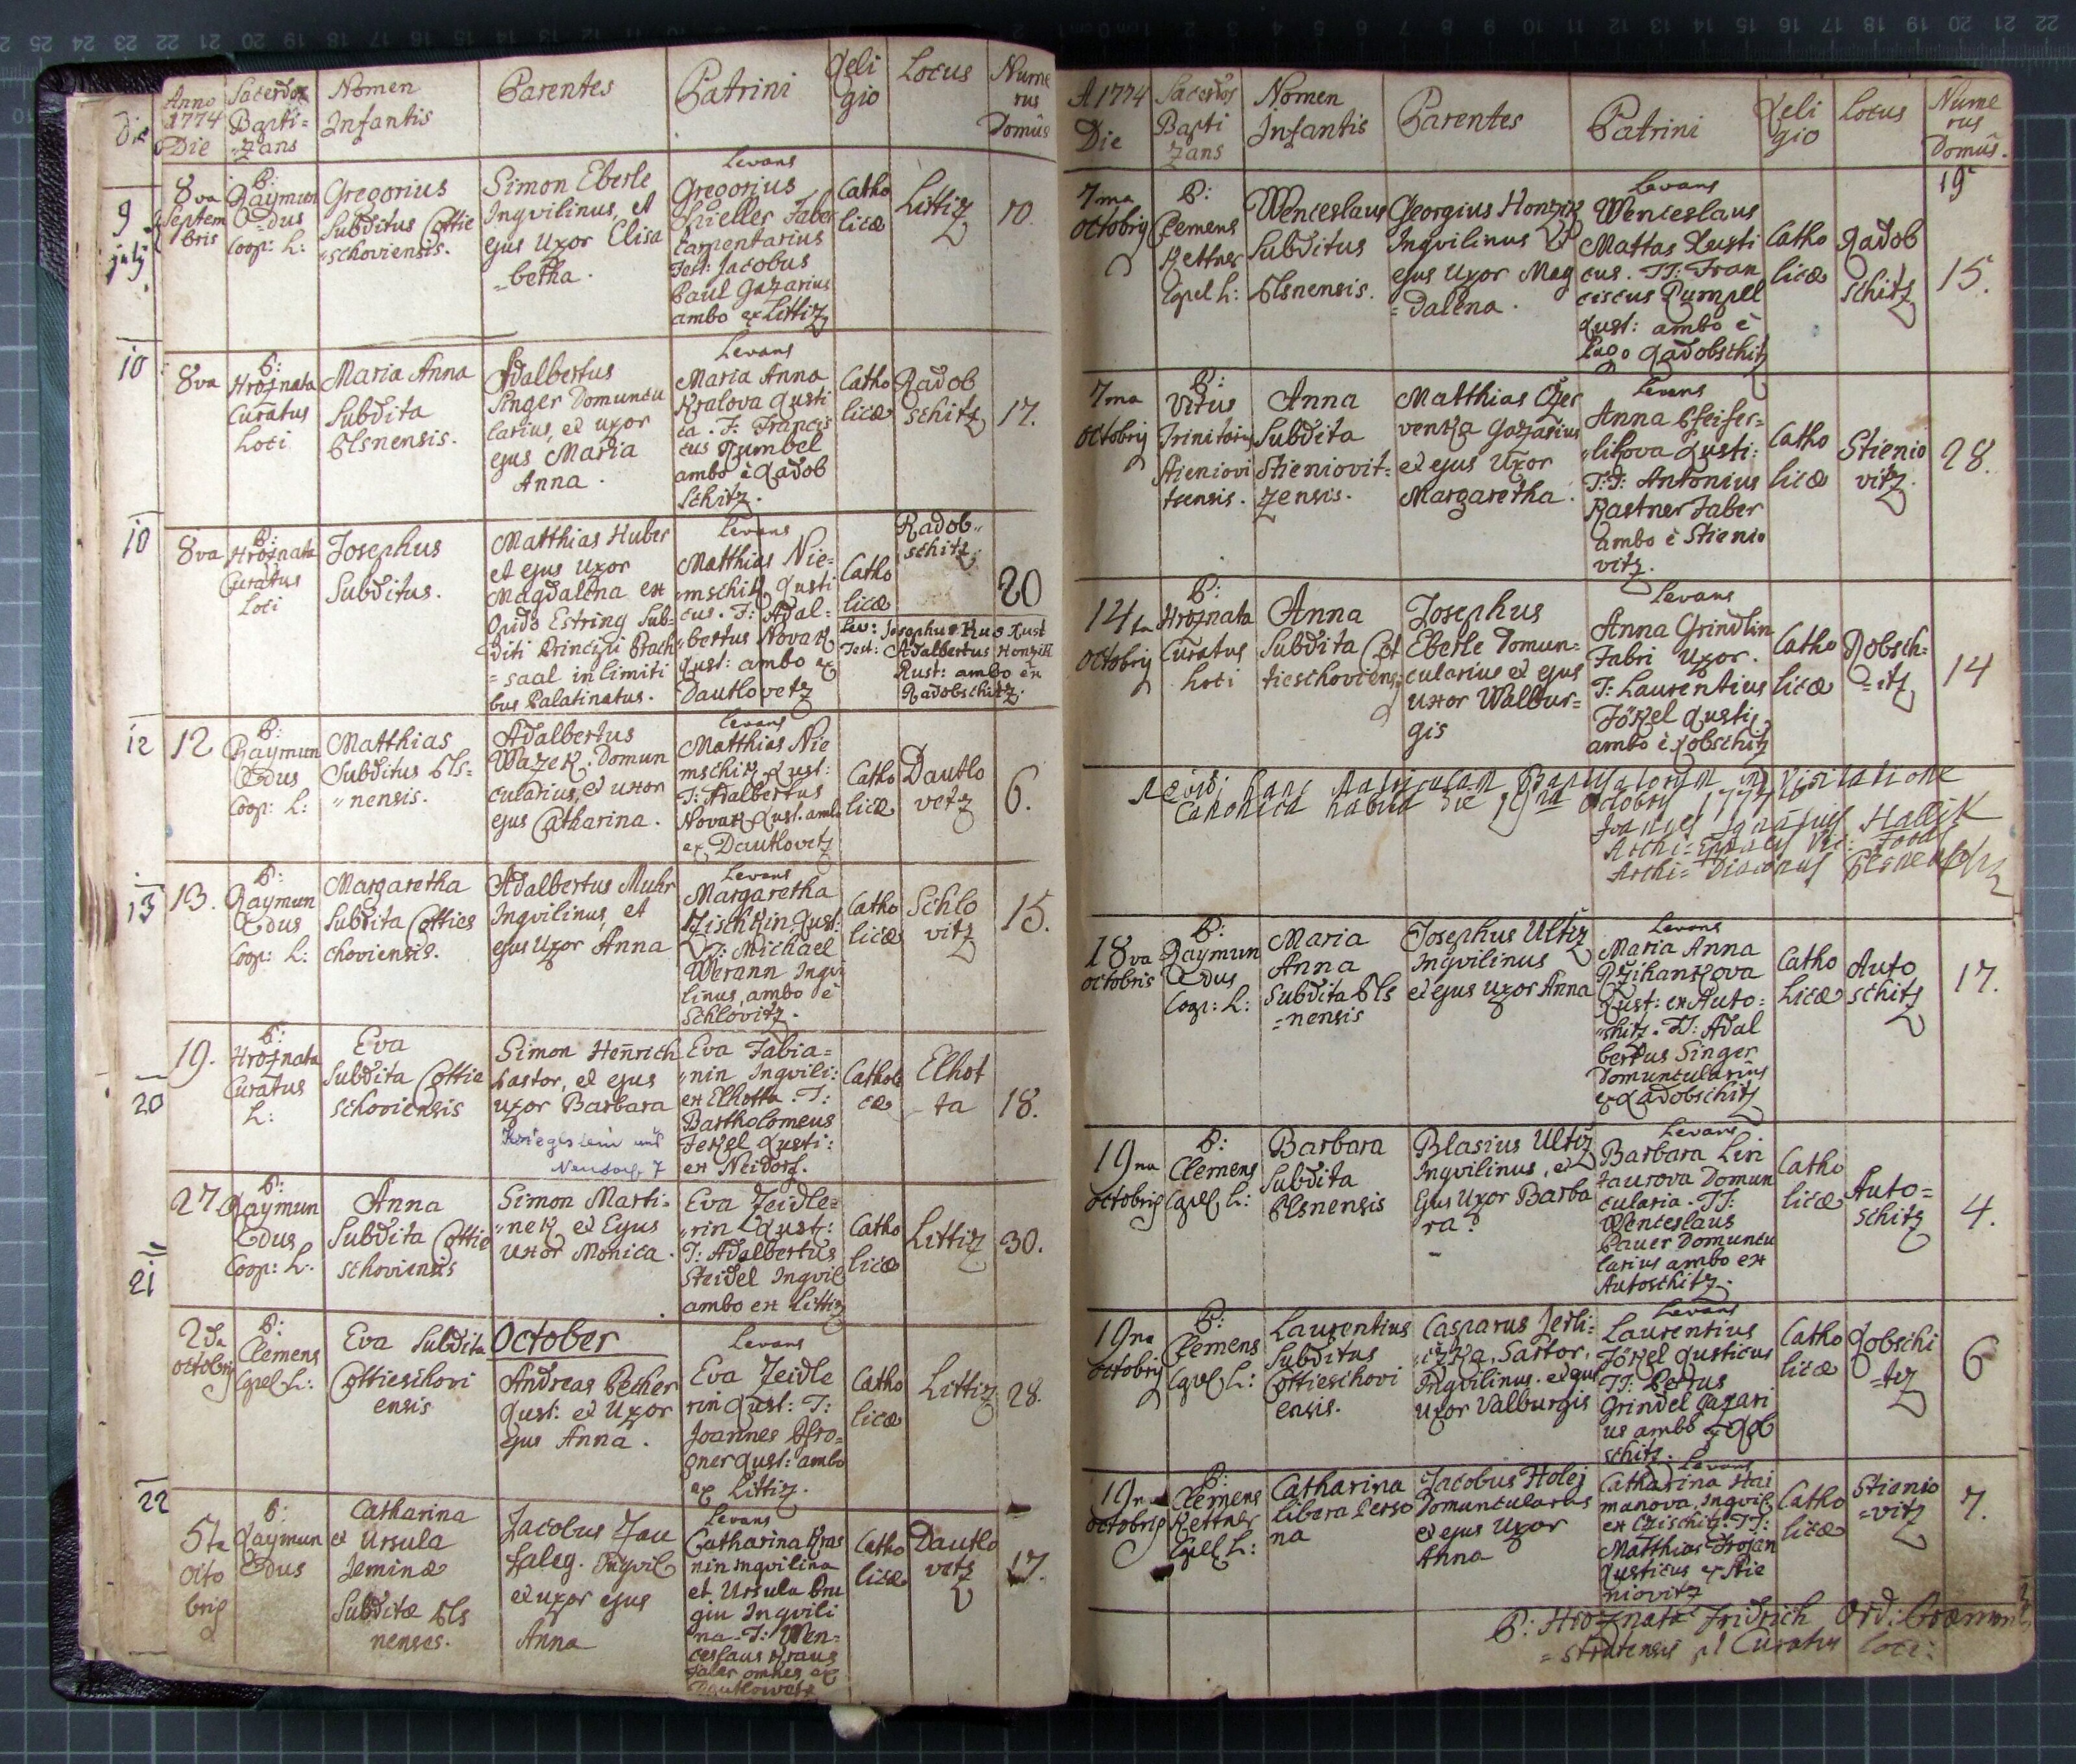 Anno 1774 Die
Sacerdos Baptizans
Nomen Infantis
Parentes
Patrini
Religio
Locus
Numerus Domûs
8va Septembris
P: Raymundus Coop: L:
Gregorius
Subditus Cottie
schoviensis.
Simon Eberle
Inqvilinus, et
ejus Uxor Elisa
betha.
Levans
Gregorius
Faber
Carpentarius
Test: Jacobus
Paul Gazarius
ambo ex Littiz
Catho
licæ
Littiz
10.
10
8va
P:
Hroznata
Curatus
Loci
Maria Anna
Subdita
Plsnensis.
Adalbertus
Singer Domuncu
larius, et uxor
ejus Maria
Anna.
Levans
Maria Anna
Kralova Rusti
ca. T: Francis
cus Rumbel
ambo è Radob
schitz.
Catho
licæ
Radob
schitz
17.
10
8va
P:
Hroznata
Curatus
Loci
Josephus
Subditus.
Matthias Huber
et ejus Uxor
Magdalena ex
Opido Estring Sub=
diti Principi Bruch
=saal in limiti
bus Palatinatus.
Levans
Matthias Nie=
mschik Rusti
cus. T: Adal=
bertus Novak
Rust: ambo ex
Dautlovetz
Catho
licæ
Radob
schitz.
20
Lev: Josephus Rust
Test: Adalbertus Honzik
Rust: ambo ex
Radobschitz.
12
12
P:
Raymun
dus
Coop: L:
Matthias
Subditus Pls=
nensis.
Adalbertus
Wazek Domun
cularius, et uxor
ejus Catharina.
Levans
Matthias Nie
mschik Rust:
T: Adalbertus
Novak Rust. amb.
ex Dautlovetz
Catho
licæ
Dautlo
vetz
6.
13
13.
P:
Raymun
dus
Coop: L:
Margaretha
Subdita Cotties
choviensis.
Adalbertus Muhr
Inqvilinus, et
ejus Uxor Anna
Levans
Margaretha
Rust:
T: Michael
Werann Inqvi
linus, ambo è
Schlovitz.
Catho
licæ
Schlo
vitz
15.
20
19.
P:
Hroznata
Curatus
L:
Eva
Subdita Cottie
schoviensis
Simon Henrich
Pastor, et ejus
uxor Barbara
Eva Fabia=
nin Inqvili:
ex Elhotta. T:
Bartholomeus
Fekel Rusti:
ex Neidorf.
Catholi
cæ
Elhot
ta
18.
27
P:
Raymun
dus
Coop: L:
Anna
Subdita Cottie
schoviensis
Simon Marti=
nek et Ejus
Uxor Monica.
Eva Zeidle=
rin Rust:
T: Adalbertus
Steidel Inqvil
ambo ex Littiz
Catho
licæ
Littiz
30.
21
October
2da
octobris
P:
Clemens
Cpel L:
Eva Subdita
Cottieschovi
ensis
Andreas Becher
Rust: et Uxor
ejus Anna.
Levans
Eva Zeidle
rin Rust: T:
Joannes
Rust: ambo
ex Littiz.
Catho
licæ
Littiz
28.
22
5ta
octo
bris
P:
Raymun
dus
Catharina
et Ursula
Geminæ
Subditæ Pls
nenses.
Jacobus
Inqvil
et uxor ejus
Anna
Levans
Catharina Kras
nin Inqvilina
et Ursula
Inqvili
na. T: Wen=
ceslaus Kraus
Faber omnes ex
Dautlowetz
Catho
licæ
Dautlo
vetz
17.
A 1774
Die
Sacerdos
Bapti
zans
Nomen
Infantis
Parentes
Patrini
Reli
gio
Locus
Nume
rus
Domûs.
7ma
octobris
P:
Clemens
Kettner
Cpel L:
Wenceslaus
Subditus
Plsnensis.
Georgius Honzik
Inqvilinus et
ejus Uxor Mag
=dalena.
Levans
Wenceslaus
Mattas Rusti
cus. TT: Fran
ciscus Rumpel
Rust: ambo è
Pago Radobschitz
Catho
licæ
Radob
schitz
19
15.
7ma
octobris
P:
Vitus
Trinitarius
Stieniovi
tzensis.
Anna
Subdita
Stieniovit=
zensis.
Matthias Czer
venka Gazarius
et ejus Uxor
Margaretha.
Levans
Anna Pfeifer=
likova Rusti:
T:T: Antonius
Kastner Faber
ambo è Stienio
vitz.
Catho
licæ
Stienio
vitz.
28.
14ta
octobris
P:
Hroznata
Curatus
Loci
Anna
Subdita Cot
tieschoviens:
Josephus
Eberle Domun=
cularius et ejus
uxor Walbur=
gis
Levans
Anna Grindlin
Fabri Uxor.
T: Laurentius
Jökel Rusti,
ambo è Robschitz
Catho
licæ
Robsch=
=itz
14
Revidi hanc Matriculam Baptizatorum in Visitatione
Canonica habita die 19na octobris 1774
Joannes Ignatius Hallik
Archi-Diaconus Plsnensis
18va
octobris
P:
Raymun
dus
Coop: L:
Maria
Anna
Subdita Pls
=nensis
Josephus Ultiz
Inqvilinus
et ejus Uxor Anna
Levans
Maria Anna
Rzihankova
Rust: ex Auto=
schitz. T: Adal
bertus Singer
Domuncularius
ex Radobschitz
Catho
licæ
Auto
schitz
17.
19na
octobris
P:
Clemens
Cpel L:
Barbara
Subdita
Plsnensis
Blasius Ultiz
Inqvilinus, et
Ejus Uxor Barba
ra.
Levans
Barbara Lin
taurova Domun
cularia. TT:
Wenceslaus
Pauer Domuncu
larius ambo ex
Autoschitz.
Catho
licæ
Auto=
schitz
4.
19na
octobris
P:
Clemens
Cpel L:
Laurentius
Subditus
Cottieschovi
ensis.
Casparus Jerli=
czka, Sartor,
Inqvilinus. et ejus
Uxor Valburgis
Levans
Laurentius
Jökel Rusticus
TT: Petrus
Grindel Gazari
us ambo ex Rob
schitz.
Catho
licæ
Robschi
=tz
6
19na
octobris
P:
Clemens
Kettner
Cpel L:
Catharina
libera Perso
na
Jacobus Holej
Domuncularius
et ejus Uxor
Anna
Levans
Catharina Hai
manova, Inqvil
ex Czischitz. TT:
Matthias Trojan
Rusticus ex Stie
niovitz
Catho
licæ
Stienio
=vitz
7.
P: Hroznata Fridrich Ord: Præmon
=stratensis Curatus loci: